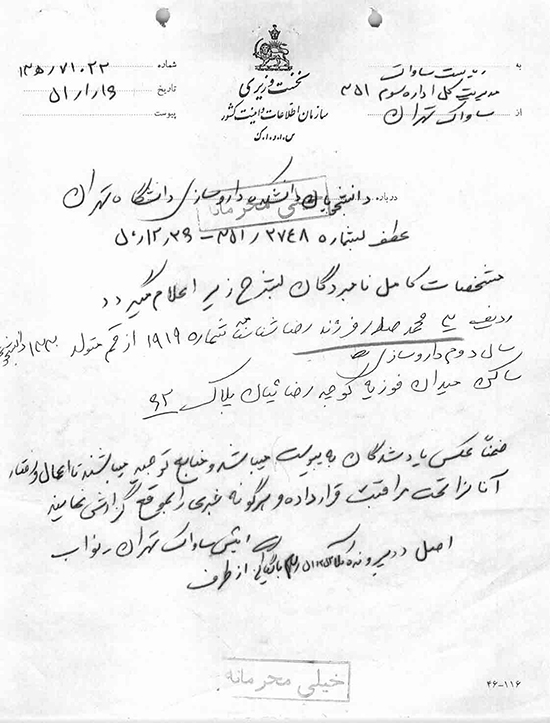 به ریاست ساواک
مدیریت کل اداره سوم ۳۵۱
از ساواک تهران
نخست وزیری
سازمان اطلاعات و امنیت کشور
س.ا.و.ا.ک
شماره ۲۲ـ۱۳۵/۷۱
تاریخ ۵۱/۱/۱۶
پیوست
درباره دانشجویان دانشکده داروسازی دانشگاه تهران
خیلی محرمانه
عطف بشماره ۳۵۱/۲۷۴۸ـ
مشخصات کامل نامبردگان بشرح زیر اعلام میگردد
ردیف ۳ محمد صادق فرزند رضا شناسنامه شماره ۱۹۱۹ از قم متولد
سال دوم داروسازی
ساکن میدان فوزیه کوچه رضائیان پلاک ۶۲
ضمناً عکس یاد شدگان به پیوست میباشد و منابع توجیه میباشند تا اعمال و رفتار
آنانرا تحت مراقبت قرار داده و هرگونه خبری را بموقع گزارش نمایند
رئیس ساواک تهران نواب
اصل در پرونده
از طرف
خیلی محرمانه
۴۶-۱۱۶